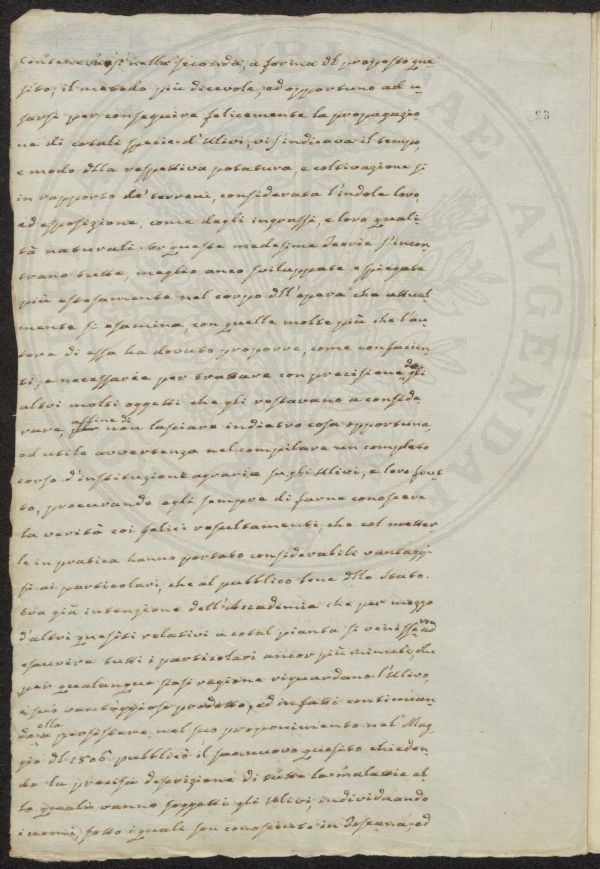 Contenevasi nella seconda, a forma di proposto que
sito, il metodo più dicevole, ed opportuno ad u
sarsi per conseguire felicemente la propagazio
ne di cotali specie d'Ulivi, vi s'indicava il tempo,
e modo dlla respettiva potatura, e coltivazione sì
in rapporto de' terreni, considerata l'indole loro,
ed esposizione, come degli ingrassi, e loro quali
tà naturali. Or queste medesime Teorie s'incon
trano tutte, meglio anco sviluppate, e spiegate
più estesamente nel corpo dll'opera che attual
mente si esamina, con quelle molte più che l'au
tore di essa ha dovuto proporre, come confacien
ti, e necessarie per trattare con precisione degli
altri molti oggetti che gli restavano a conside
rare, affine di non lasciare indietro cosa opportuna,
od utile avvertenza nel compilare un completo
corso d'instituzioni agrarie su gli Ulivi, e loro frut
to, procurando egli sempre di farne conoscere
la verità coi felici resultamenti, che col metter
le in pratica hanno portato considerabili vantaggi
sì ai particolari, che al pubblico bene dllo Stato.
Era già intenzione dell'Accademia che per mezzo
d'altri quesiti relativi a cotal pianta si venisse ad
esaurire tutti i particolari ancor più minuti, che
per qualunque siasi ragione riguardano l'Ulivo,
e suo vantaggioso prodotto, ed in fatti continuan
do ella a persistere nel suo proponimento nel Mag
gio dl 1806. pubblicò il suo nuovo quesito chieden
do la precisa descrizione di tutte le malattie al
le quali vanno soggetti gli Ulivi, individuando
i nomi, sotto i quali son conosciute in Toscana, ed